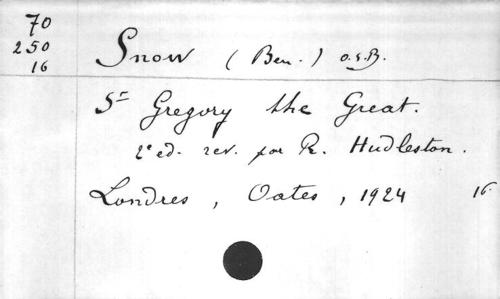 70
250
16
Snow (Ben.) O.S.B.
St Gregory the Great.
2e ed. rev. par R. Hudleston.
Londres, Oates, 1924 16.